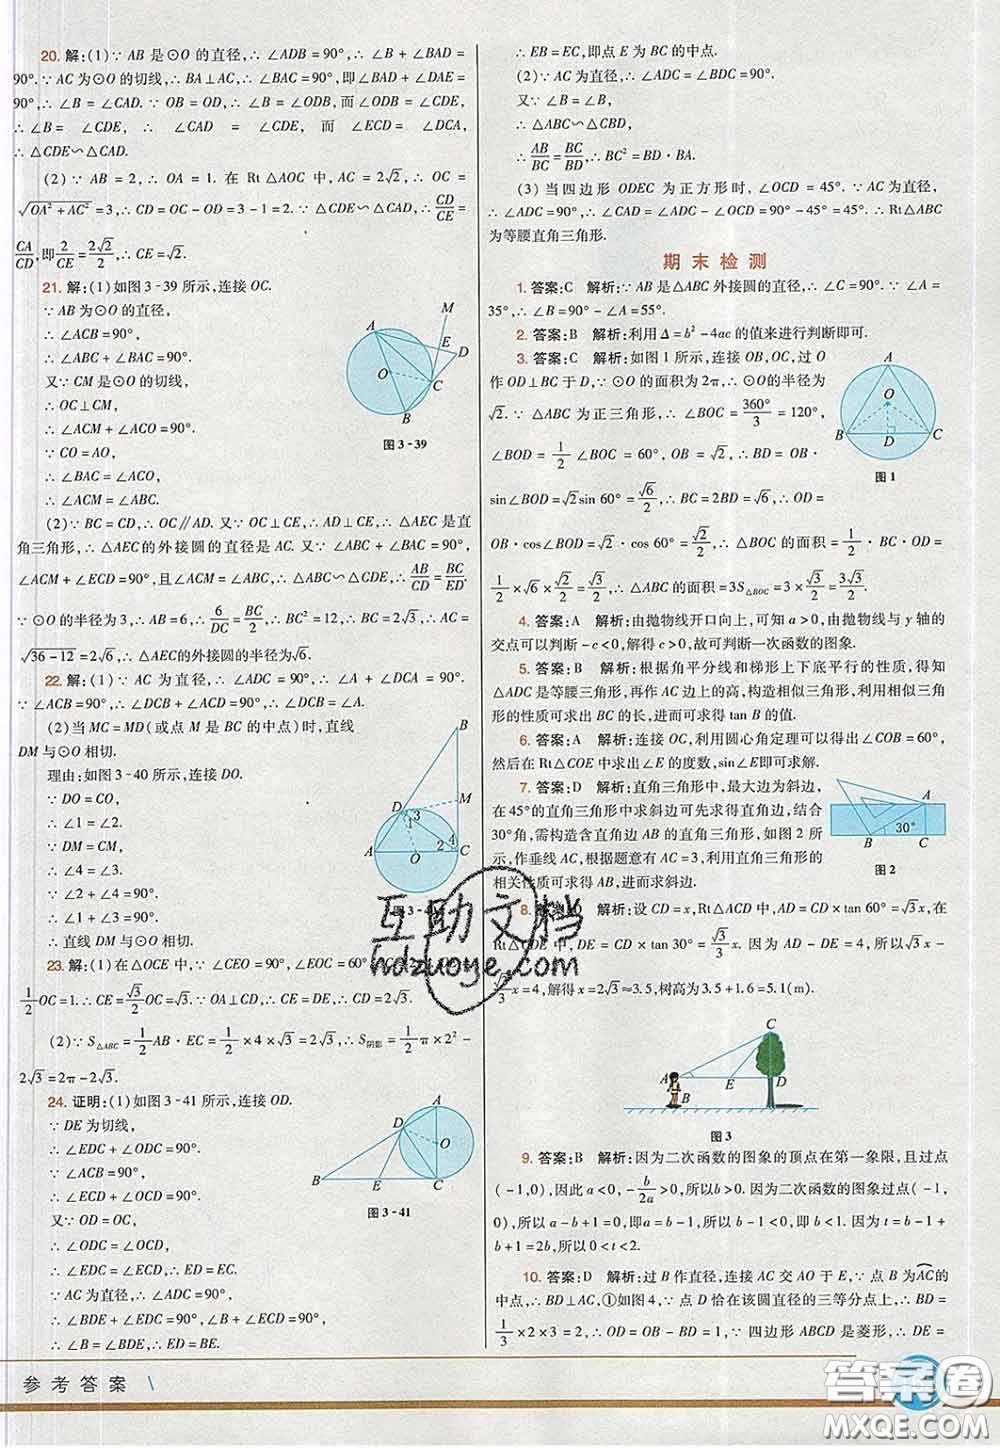 20. 解:(1)∵ AB 是⊙O 的直径,∴ ∠ADB = 90°,∴ ∠B + ∠BAD =
90°.∵ AC 为⊙O 的切线,∴ BA⊥AC,∴ ∠BAC = 90°,即∠BAD + ∠DAE =
90°,∴ ∠B = ∠CAD.∵ OB = OD,∴ ∠B = ∠ODB,而∠ODB = ∠CDE,
∴ ∠B = ∠CDE, ∴ ∠CAD = ∠CDE, 而 ∠ECD = ∠DCA,
∴ △CDE∽△CAD.
(2)∵ AB = 2,∴ OA = 1. 在 Rt△AOC 中,AC = 2√2,∴ OC =
√(OA²+AC²) = 3,∴ CD = OC - OD = 3 - 1 = 2.∵ △CDE∽△CAD,∴ CD/CE =
CA/CD,即 2/CE = 2√2/2,∴ CE = √2.
21. 解:(1)如图 3-39 所示,连接 OC.
∵ AB 为⊙O 的直径,
∴ ∠ACB = 90°,
∴ ∠ABC + ∠BAC = 90°.
又∵ CM 是⊙O 的切线,
∴ OC⊥CM,
∴ ∠ACM + ∠ACO = 90°.
∵ CO = AO,
∴ ∠BAC = ∠ACO,
∴ ∠ACM = ∠ABC.
M
A
E
D
O
C
B
图 3-39
(2)∵ BC = CD,∴ OC∥AD. 又∵ OC⊥CE,∴ AD⊥CE,∴ △AEC 是直
角三角形,∴ △AEC的外接圆的直径是 AC. 又∵ ∠ABC + ∠BAC = 90°,
∠ACM + ∠ECD = 90°,且∠ACM = ∠ABC,∴ △ABC∽△CDE,∴ AB/CD = BC/ED.
∵ ⊙O 的半径为 3,∴ AB = 6,∴ 6/DC = BC/2,∴ BC² = 12,∴ BC = 2√3,∴ AC =
√(36-12) = 2√6,∴ △AEC的外接圆的半径为√6.
22. 解:(1)∵ AC 为直径,∴ ∠ADC = 90°,∴ ∠A + ∠DCA = 90°.
∵ ∠ACB = 90°,∴ ∠DCB + ∠ACD = 90°,∴ ∠DCB = ∠A.
(2)当 MC = MD(或点 M 是 BC 的中点)时,直线
DM 与⊙O 相切.
理由:如图 3-40 所示,连接 DO.
∵ DO = CO,
∴ ∠1 = ∠2.
∵ DM = CM,
∴ ∠4 = ∠3.
∵ ∠2 + ∠4 = 90°,
∴ ∠1 + ∠3 = 90°,
∴ 直线 DM 与⊙O 相切.
B
M
D
3
1
2
4
A
O
C
23. 解:(1)在△OCE 中,∵ ∠CEO = 90°,∠EOC = 60°
1/2 OC = 1.∴ CE = √3/2 OC = √3.∵ OA⊥CD,∴ CE = DE,∴ CD = 2√3.
(2)∵ S△ABC = 1/2 AB·EC = 1/2 × 4 × √3 = 2√3,∴ S阴影 = 1/2 π × 2² -
2√3 = 2π - 2√3.
24. 证明:(1)如图 3-41 所示,连接 OD.
∵ DE 为切线,
∴ ∠EDC + ∠ODC = 90°.
∵ ∠ACB = 90°,
∴ ∠ECD + ∠OCD = 90°.
又∵ OD = OC,
∴ ∠ODC = ∠OCD,
∴ ∠EDC = ∠ECD,∴ ED = EC.
∵ AC 为直径,∴ ∠ADC = 90°,
∴ ∠BDE + ∠EDC = 90°,∠B + ∠ECD = 90°,
∴ ∠B = ∠BDE,∴ ED = BE.
A
D
O
B
E
C
图 3-41
∴ EB = EC,即点 E 为 BC 的中点.
(2)∵ AC 为直径,∴ ∠ADC = ∠BDC = 90°.
又∵ ∠B = ∠B,
∴ △ABC∽△CBD,
∴ AB/BC = BC/BD,∴ BC² = BD·BA.
(3) 当四边形 ODEC 为正方形时,∠OCD = 45°.∵ AC 为直径,
∴ ∠ADC = 90°,∴ ∠CAD = ∠ADC - ∠OCD = 90° - 45° = 45°.∴ Rt△ABC
为等腰直角三角形.
期末检测
1. 答案:C 解析:∵ AB 是△ABC 外接圆的直径,∴ ∠C = 90°.∵ ∠A =
35°,∴ ∠B = 90° - ∠A = 55°.
2. 答案:B 解析:利用 Δ = b² - 4ac 的值来进行判断即可.
3. 答案:C 解析:如图 1 所示,连接 OB,OC,过 O
作 OD⊥BC 于 D,∵ ⊙O 的面积为 2π,∴ ⊙O的半径为
√2.∵ △ABC 为正三角形,∴ ∠BOC = 360°/3 = 120°,
∠BOD = 1/2 ∠BOC = 60°,OB = √2,∴ BD = OB·
sin∠BOD = √2 sin 60° = √6/2,∴ BC = 2BD = √6,∴ OD =
OB·cos∠BOD = √2·cos 60° = √2/2,∴ △BOC 的面积 = 1/2·BC·OD =
1/2 × √6 × √2/2 = √3/2,∴ △ABC 的面积 = 3S△BOC = 3 × √3/2 = 3√3/2.
A
O
B
D
C
图 1
4. 答案:A 解析:由抛物线开口向上,可知 a > 0,由抛物线与 y 轴的
交点可以判断 -c < 0,解得 c > 0,故可判断一次函数的图象.
5. 答案:B 解析:根据角平分线和梯形上下底平行的性质,得知
△ADC 是等腰三角形,再作 AC 上的高,构造相似三角形,利用相似三角
形的性质可求出 BC 的长,进而可求得 tan B 的值.
6. 答案:A 解析:连接 OC,利用圆心角定理可以求出∠COB = 60°,
然后在 Rt△COE 中求出∠E 的度数,sin∠E即可求出.
7. 答案:D 解析:直角三角形中,最大边为斜边,
在45°的直角三角形中求斜边可先求得直角边,结合
30°角,需构造含直角边 AB 的直角三角形,如图 2 所
示,作垂线 AC,根据题意有 AC = 3,利用直角三角形的
相关性质可求得 AB,进而求斜边.
A
30°
B
C
图 2
8. 答案:D 解析:设 CD = x,Rt△ACD 中,AD = CD × tan 60° = √3x,在
Rt△CDE 中,DE = CD × tan 30° = √3/3 x. 因为 AD - DE = 4,所以 √3x -
√3/3 x = 4,解得 x = 2√3 ≈ 3.5,树高为 3.5 + 1.6 = 5.1(m).
C
A
E
D
图 3
9. 答案:B 解析:因为二次函数的图象的顶点在第一象限,且过点
(-1,0),因此 a < 0,-b/2a > 0,所以 b > 0. 因为二次函数的图象过点(-1,
0),所以 a - b + 1 = 0,所以 a = b - 1,所以 b - 1 < 0,即 b < 1. 因为 t = a +
b + 1 = 2b,所以 0 < t < 2.
10. 答案:D 解析:过 B 作直径,连接 AC 交 AO 于 E,∵ 点 B 为AC的
中点,∴ BD⊥AC,①如图 4,∵ 点 D 恰在该圆直径的三等分点上,∴ BD =
1/3 × 2 × 3 = 2,∴ OD = OB - BD = 1.∵ 四边形 ABCD 是菱形,∴ DE =
参考答案
互助文档
hdzuoye.com
答案圈
MXQE.COM